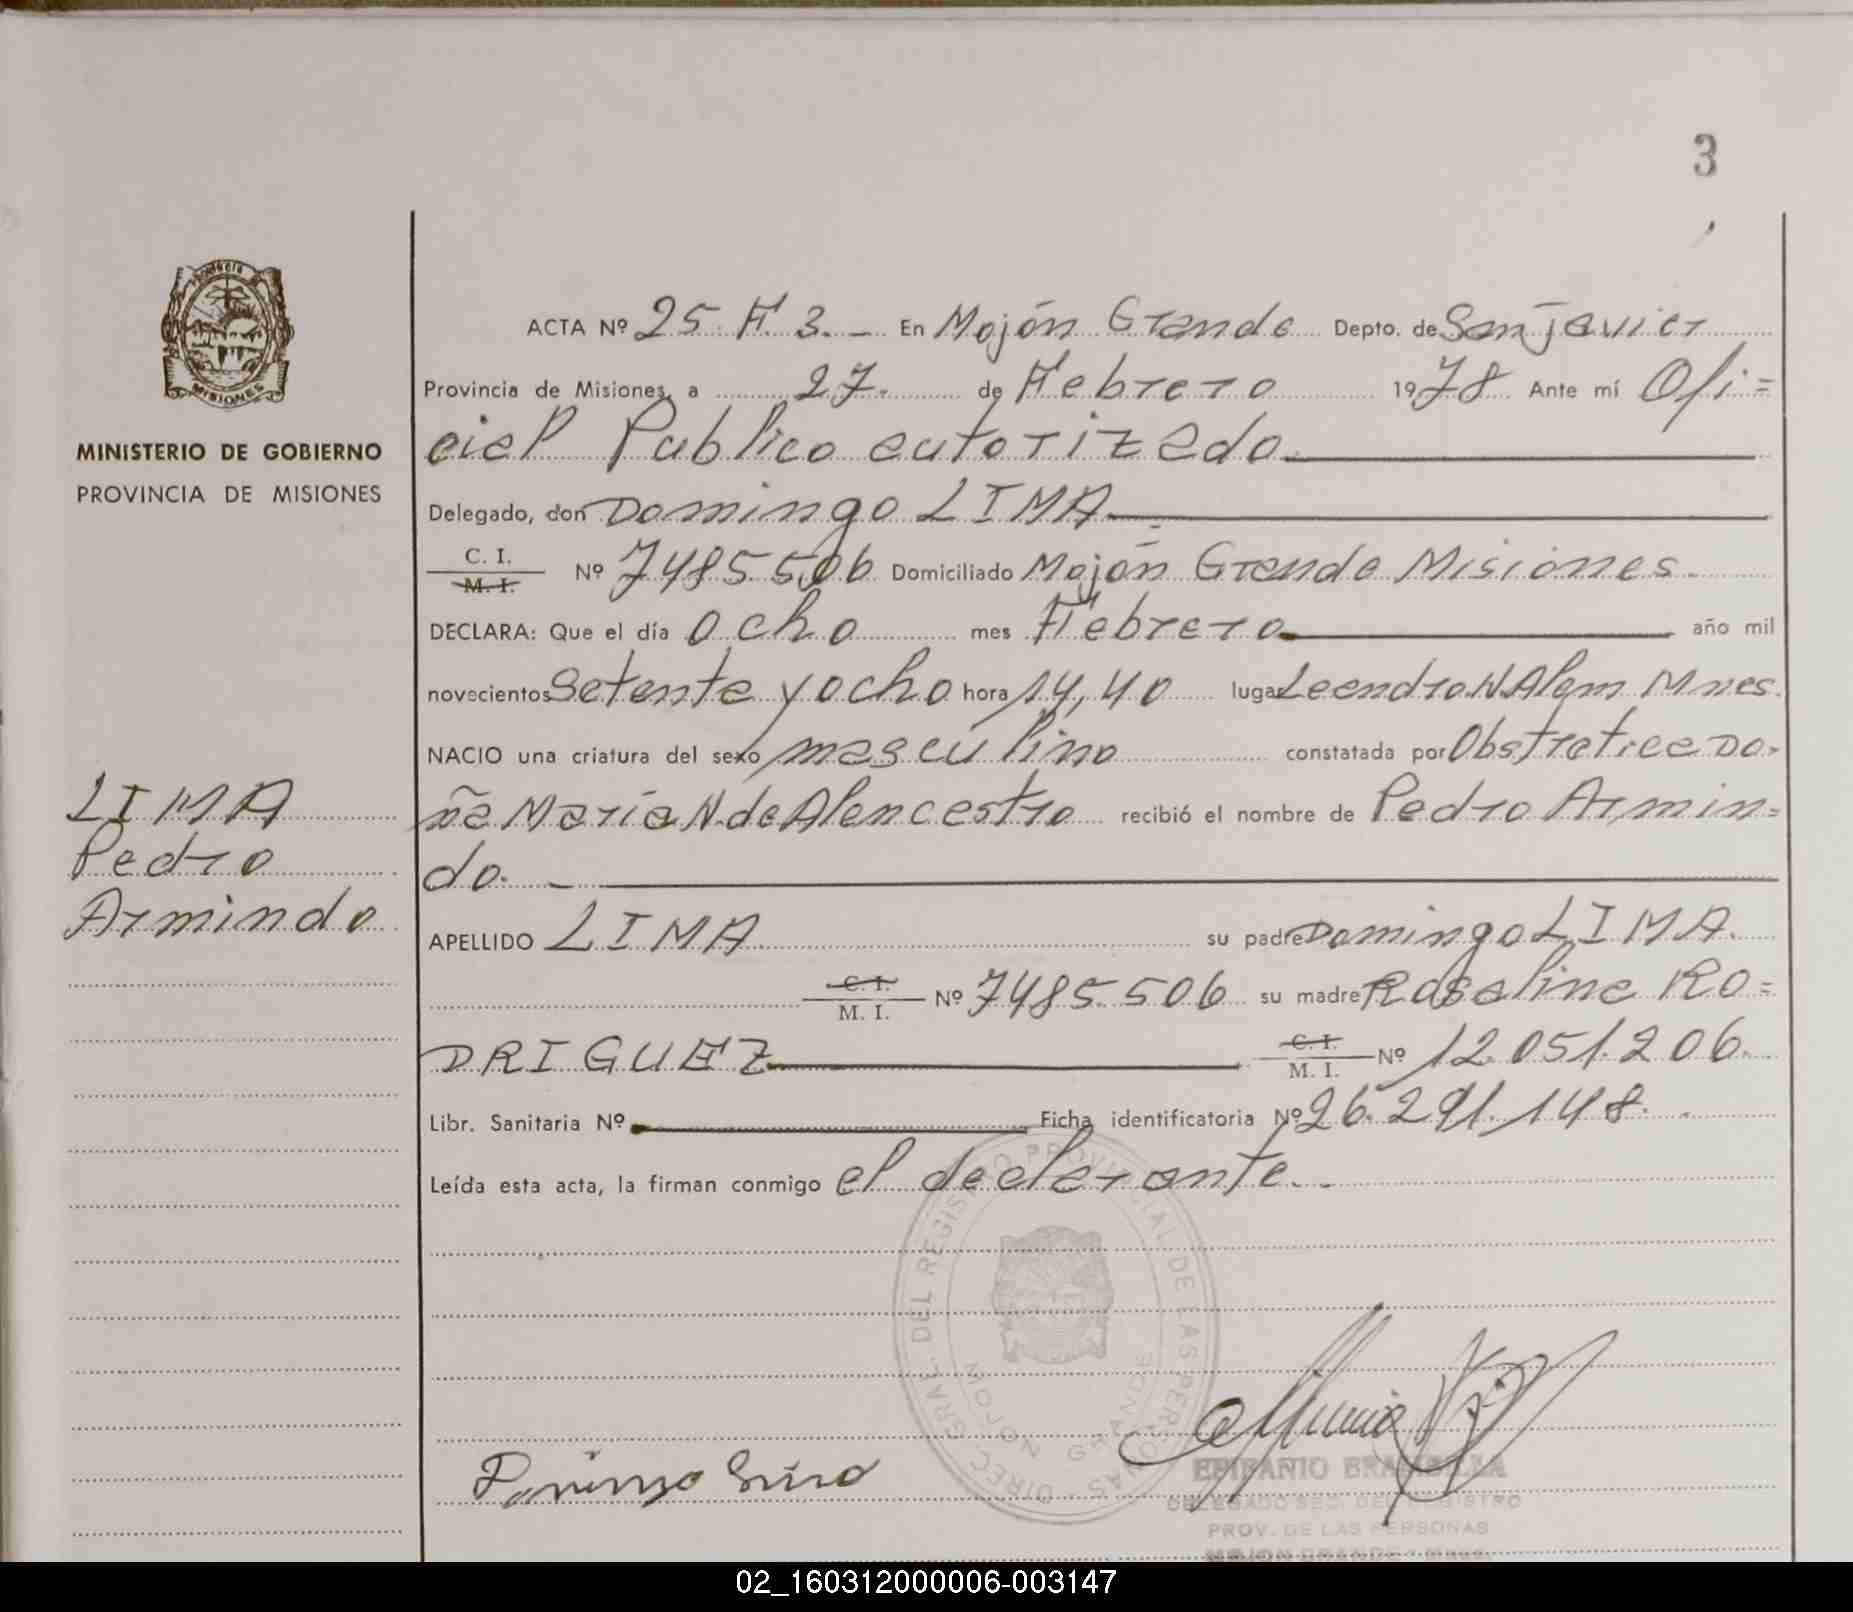 3
ACTA Nº 25. F 3. - En Mojón Grande Depto. de San Javier
Provincia de Misiones, a 27. de Febrero 1978 Ante mí Ofi=
cial Publico autorizado
MINISTERIO DE GOBIERNO
PROVINCIA DE MISIONES
Delegado, don Domingo LIMA
C. I.
M. I.
Nº 7485506 Domiciliado Mojón Grande Misiones.
DECLARA: Que el día ocho mes Febrero año mil
novecientos Setenta y ocho hora 14,40 lugar Leandro N Alem Mnes.
NACIO una criatura del sexo masculino constatada por Obstretica Do-
ña María N. de Alencastro recibió el nombre de Pedro Armin=
do.
LIMA
Pedro
Armindo
APELLIDO LIMA su padre Domingo LIMA.
C. I.
M. I.
Nº 7485.506 su madre Rosalina RO=
DRIGUEZ
C. I.
M. I.
Nº 12.051.206.
Libr. Sanitaria Nº Ficha identificatoria Nº 26.291.148.
Leída esta acta, la firman conmigo el declarante.
DIREC. GRAL. DEL REGISTRO PROVINCIAL DE LAS PERSONAS
MOJON GRANDE
EPIFANIO BRAMBILLA
DELEGADO SEC. DEL REGISTRO
PROV. DE LAS PERSONAS
MOJON GRANDE - Mnes.
02_160312000006-003147